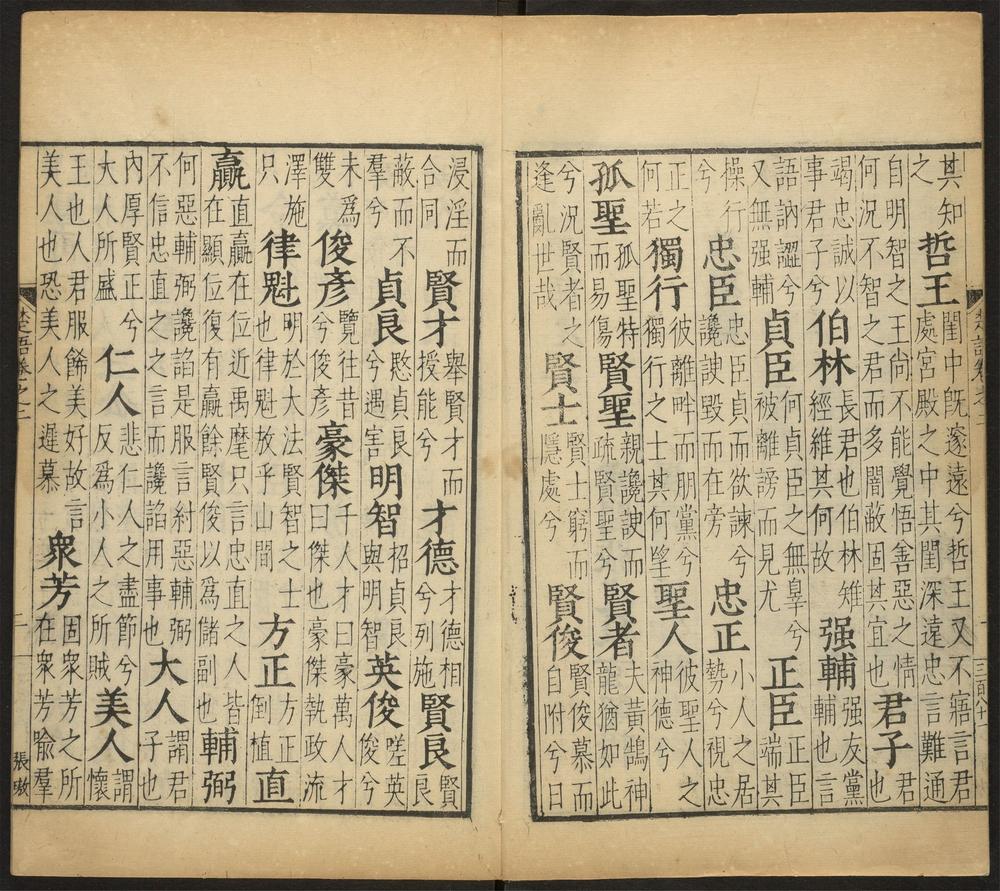 其知
之
哲王
閨中既邃遠兮哲王又不寤言君
處宮殿之中其閨深遠忠言難通
自明智之王尚不能覺悟善惡之情
何況不智之君而多闇蔽固其宜也
君子
君
也
竭忠誠以
事君子兮
伯林
長君也伯林雉
經維其何故
强輔
强友黨
輔也言
語訥澀兮
又無强輔
貞臣
何貞臣之無辠兮
被離謗而見尤
正臣
正臣
端其
操行
兮
忠臣
忠臣貞而欲諫兮
讒諛毀而在旁
忠正
小人之居
勢兮視忠
正之
何若
獨行
彼離畔而朋黨兮
獨行之士其何望
聖人
彼聖人之
神德兮
孤聖
孤聖特
而易傷
賢聖
親讒諛而
疏賢聖兮
賢者
夫黃鵠神
龍猶如此
兮況賢者之
逢亂世哉
賢士
賢士窮而
隱處兮
賢俊
賢俊慕而
自附兮日
浸淫而
合同
賢才
舉賢才而
授能兮
才德
才德相
兮列施
賢良
賢
良
蔽而不
羣兮
貞良
愍貞良
兮遇害
明智
招貞良
與明智
英俊
嗟英
俊兮
未爲
雙
俊彥
覽往昔
兮俊彥
豪傑
千人才曰豪萬人才
曰傑也豪傑執政流
澤施
只
律魁
明於大法賢智之士
也律魁放乎山間
方正
方正
倒植
直
贏
直贏在位近禹麾只言忠直之人皆
在顯位復有贏餘賢俊以爲儲副也
輔弼
何惡輔弼讒諂是服言紂惡輔弼
不信忠直之言而讒諂用事也
大人
謂君
子也
內厚賢正兮
大人所盛
仁人
悲仁人之盡節兮
反爲小人之所賊
美人
謂
懷
王也人君服飾美好故言
美人也恐美人之遲慕
衆芳
固衆芳之所
在衆芳喻羣